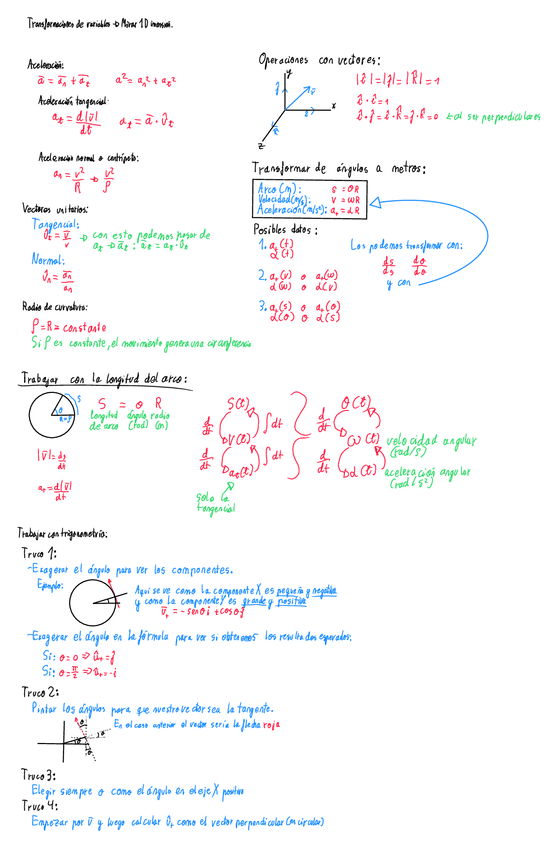 Transformaciones de variables → Mirar 1D inercial.
Aceleración:
a̅ = a̅ₙ + a̅ₜ   a² = aₙ² + aₜ²
Aceleración tangencial:
aₜ = d|v̅|/dt   aₜ = a̅ · û̂ₜ
Aceleración normal o centrípeta:
aₙ = v²/R → v²/ρ
Vectores unitarios:
Tangencial:
ûₜ = v̅/v → con esto podemos pasar de
aₜ → a̅ₜ : a̅ₜ = aₜ · ûₜ
Normal:
ûₙ = a̅ₙ/aₙ
Radio de curvatura:
ρ = R = constante
Si ρ es constante, el movimiento genera una circunferencia
Operaciones con vectores:
y
v̅
x
z
|î| = |ĵ| = |k̂| = 1
î · î = 1
î · ĵ = î · k̂ = ĵ · k̂ = 0 ← al ser perpendiculares
Transformar de ángulos a metros:
Arco (m): s = θR
Velocidad (m/s): v = ωR
Aceleración (m/s²): aₜ = αR
Posibles datos:
1. aₜ(t)
α(t)
2. aₜ(v) o aₜ(ω)
α(ω) o α(v)
3. aₜ(s) o aₜ(θ)
α(θ) o α(s)
Los podemos transformar con:
ds/ds   dθ/dθ
y con
Trabajar con la longitud del arco:
S = θ R
longitud de arco   ángulo (rad)   radio (m)
|v̅| = ds/dt
aₜ = d|v̅|/dt
S(t)   θ(t)
d/dt   ∫dt   d/dt
v(t)   ω(t) velocidad angular (rad/s)
d/dt   ∫dt   d/dt
aₜ(t)   α(t) aceleración angular (rad/s²)
solo la
tangencial
Trabajar con trigonometría:
Truco 1:
-Exagerar el ángulo para ver los componentes.
Ejemplo:
Aquí se ve como la componente X es pequeña y negativa
y como la componente Y es grande y positiva
v̅ₜ = -senθ i + cosθ j
-Exagerar el ángulo en la fórmula para ver si obtenemos los resultados esperados:
Si: θ = 0 ⇒ ûₜ = ĵ
Si: θ = π/2 ⇒ ûₜ = -i
Truco 2:
Pintar los ángulos para que nuestro vector sea la tangente.
En el caso anterior el vector sería la flecha roja
Truco 3:
Elegir siempre θ como el ángulo en el eje X positivo
Truco 4:
Empezar por v̅ y luego calcular ûₜ como el vector perpendicular (m circular)